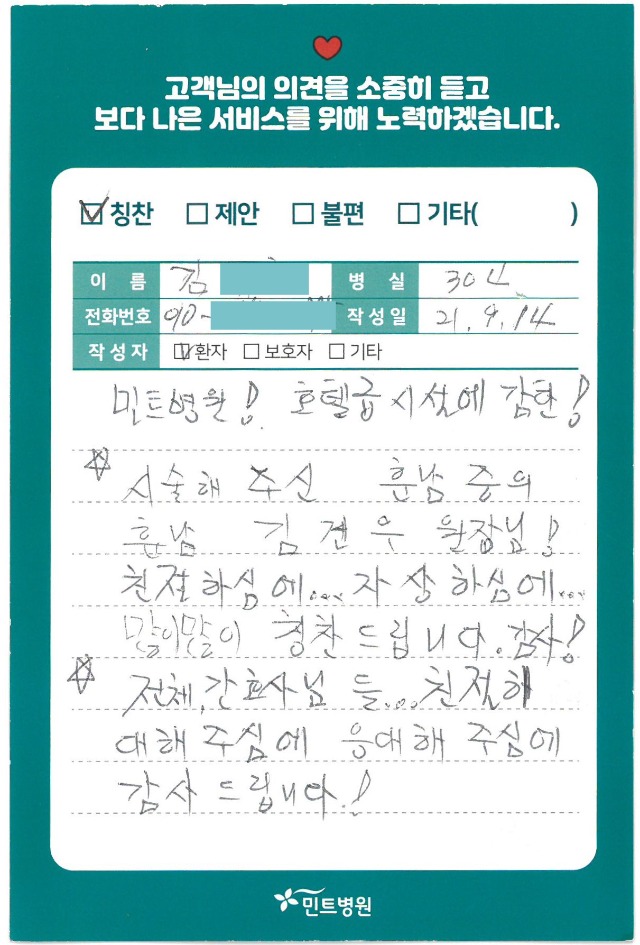 고객님의 의견을 소중히 듣고
보다 나은 서비스를 위해 노력하겠습니다.
☑ 칭찬 □ 제안 □ 불편 □ 기타( )
이 름 김 병 실
전화번호 작성일 21. 9. 14
작성자 ☑환자 □보호자 □기타
민트병원! 호텔급 시설에 감탄!
☆ 시술해 주신 훈남 중의
훈남 김건우 원장님!
친절하심에... 자상하심에...
많이많이 칭찬드립니다. 감사!
☆ 전체, 간호사님 들... 친절히
대해 주심에 응대해 주심에
감사드립니다.!
민트병원